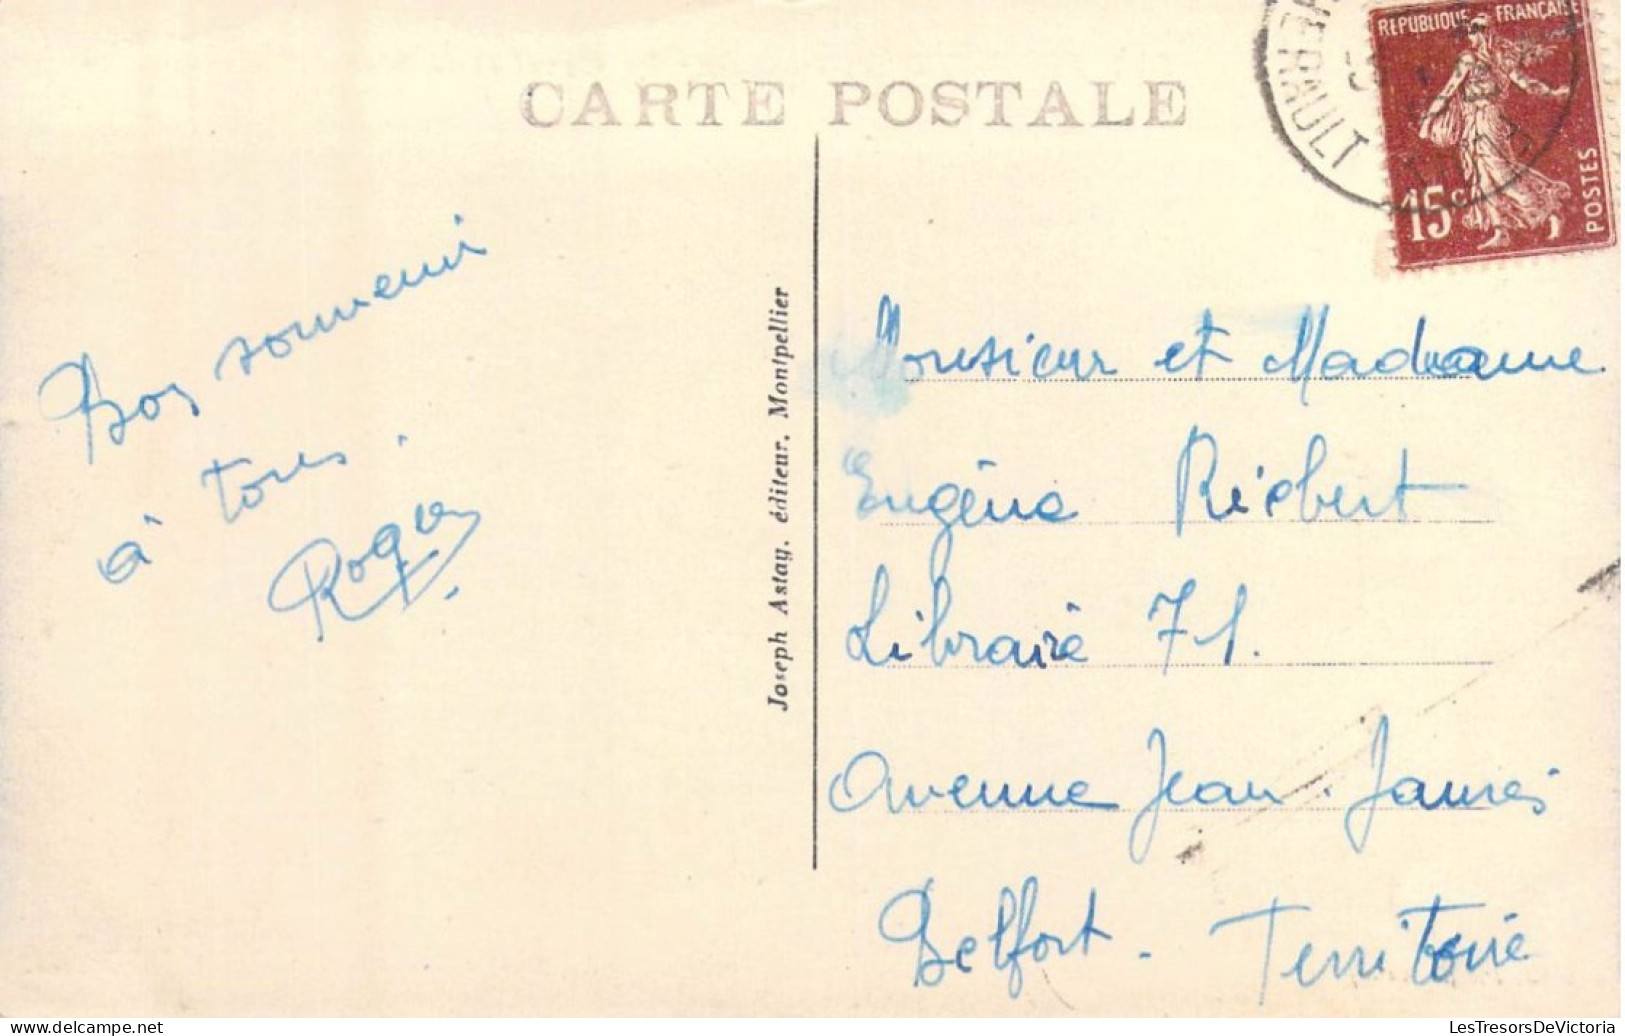 CARTE POSTALE
RÉPUBLIQUE FRANÇAISE
15c
POSTES
HÉRAULT
Bon souvenir
à tous.
Joseph Astay, éditeur, Montpellier
Monsieur et Madame
Eugène Riebert
Libraire 71.
Avenue Jean Jaurès
Belfort - Territoire
delcampe.net
LesTresorsDeVictoria